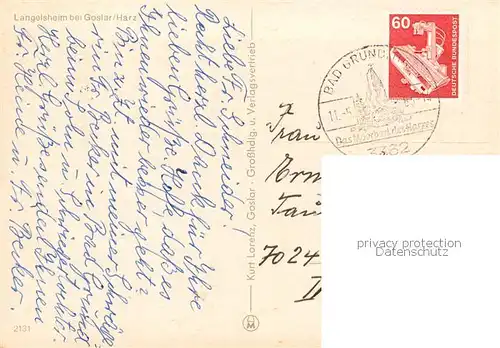 Langelsheim bei Goslar/Harz
Liebe Fr. Schneider!
Recht herzl. Dank für Ihre
lieben Grüße. Hoffe, daß es
Ihnen wieder besser geht?
Bin z.Zt. mit meiner Schwäge-
rin Fr. Becker in Bad Grund
Herzl. Grüße senden Ihnen
Fr. Heide u. Fr. Becker.
2131
Kurt Lorenz, Goslar - Großhdlg. u. Verlagsvertrieb
60
DEUTSCHE BUNDESPOST
BAD GRUND
Das Moorbad des Harzes
3362
Frau
7024
privacy protection
Datenschutz